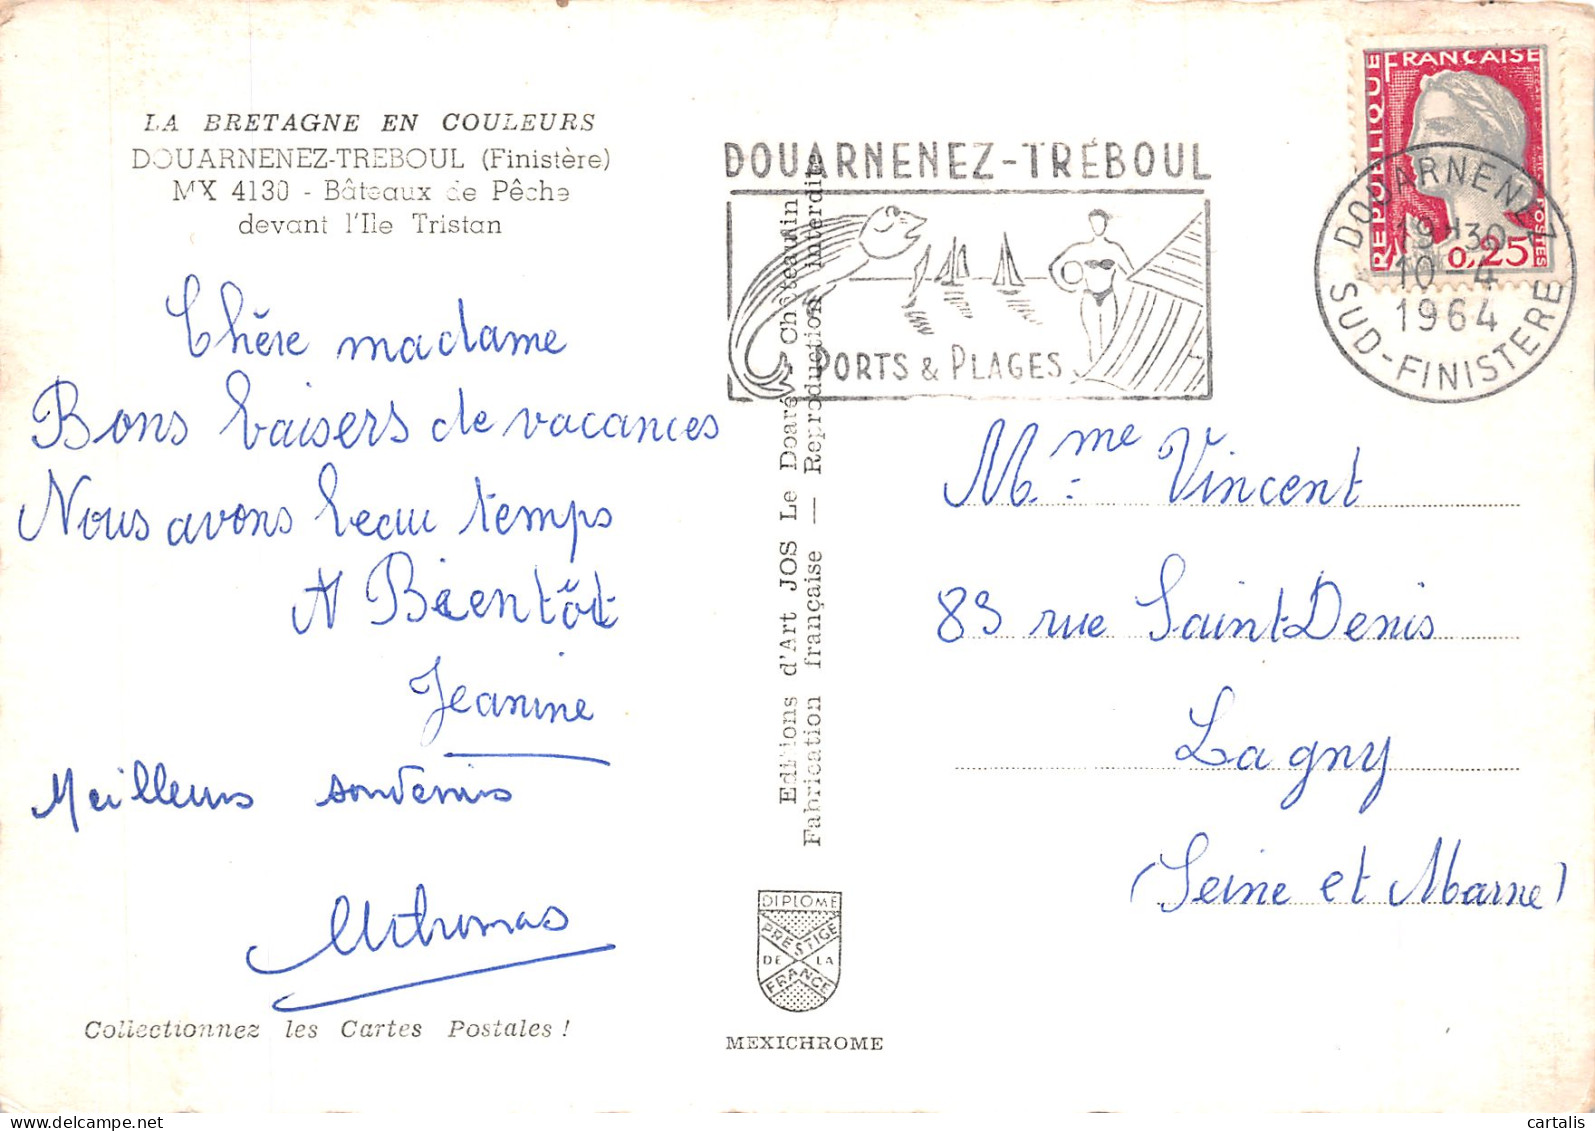 LA BRETAGNE EN COULEURS
DOUARNENEZ-TREBOUL (Finistère)
MX 4130 - Bâteaux de Pêche
devant l'Ile Tristan
Chère madame
Bons baisers de vacances
Nous avons beau temps
A Bientôt
Jeanine
Meilleurs souvenirs
Collectionnez les Cartes Postales !
Editions d'Art JOS Le Doaré - Châteaulin
Fabrication française — Reproduction interdite
DIPLOME
PRESTIGE
DE LA
FRANCE
MEXICHROME
DOUARNENEZ-TRÉBOUL
PORTS & PLAGES
REPUBLIQUE FRANÇAISE
POSTES
0,25
DOUARNENEZ
19H30
10-4
1964
SUD-FINISTERE
Mme Vincent
83 rue Saint-Denis
Lagny
(Seine et Marne)
cartalis
© www.delcampe.net